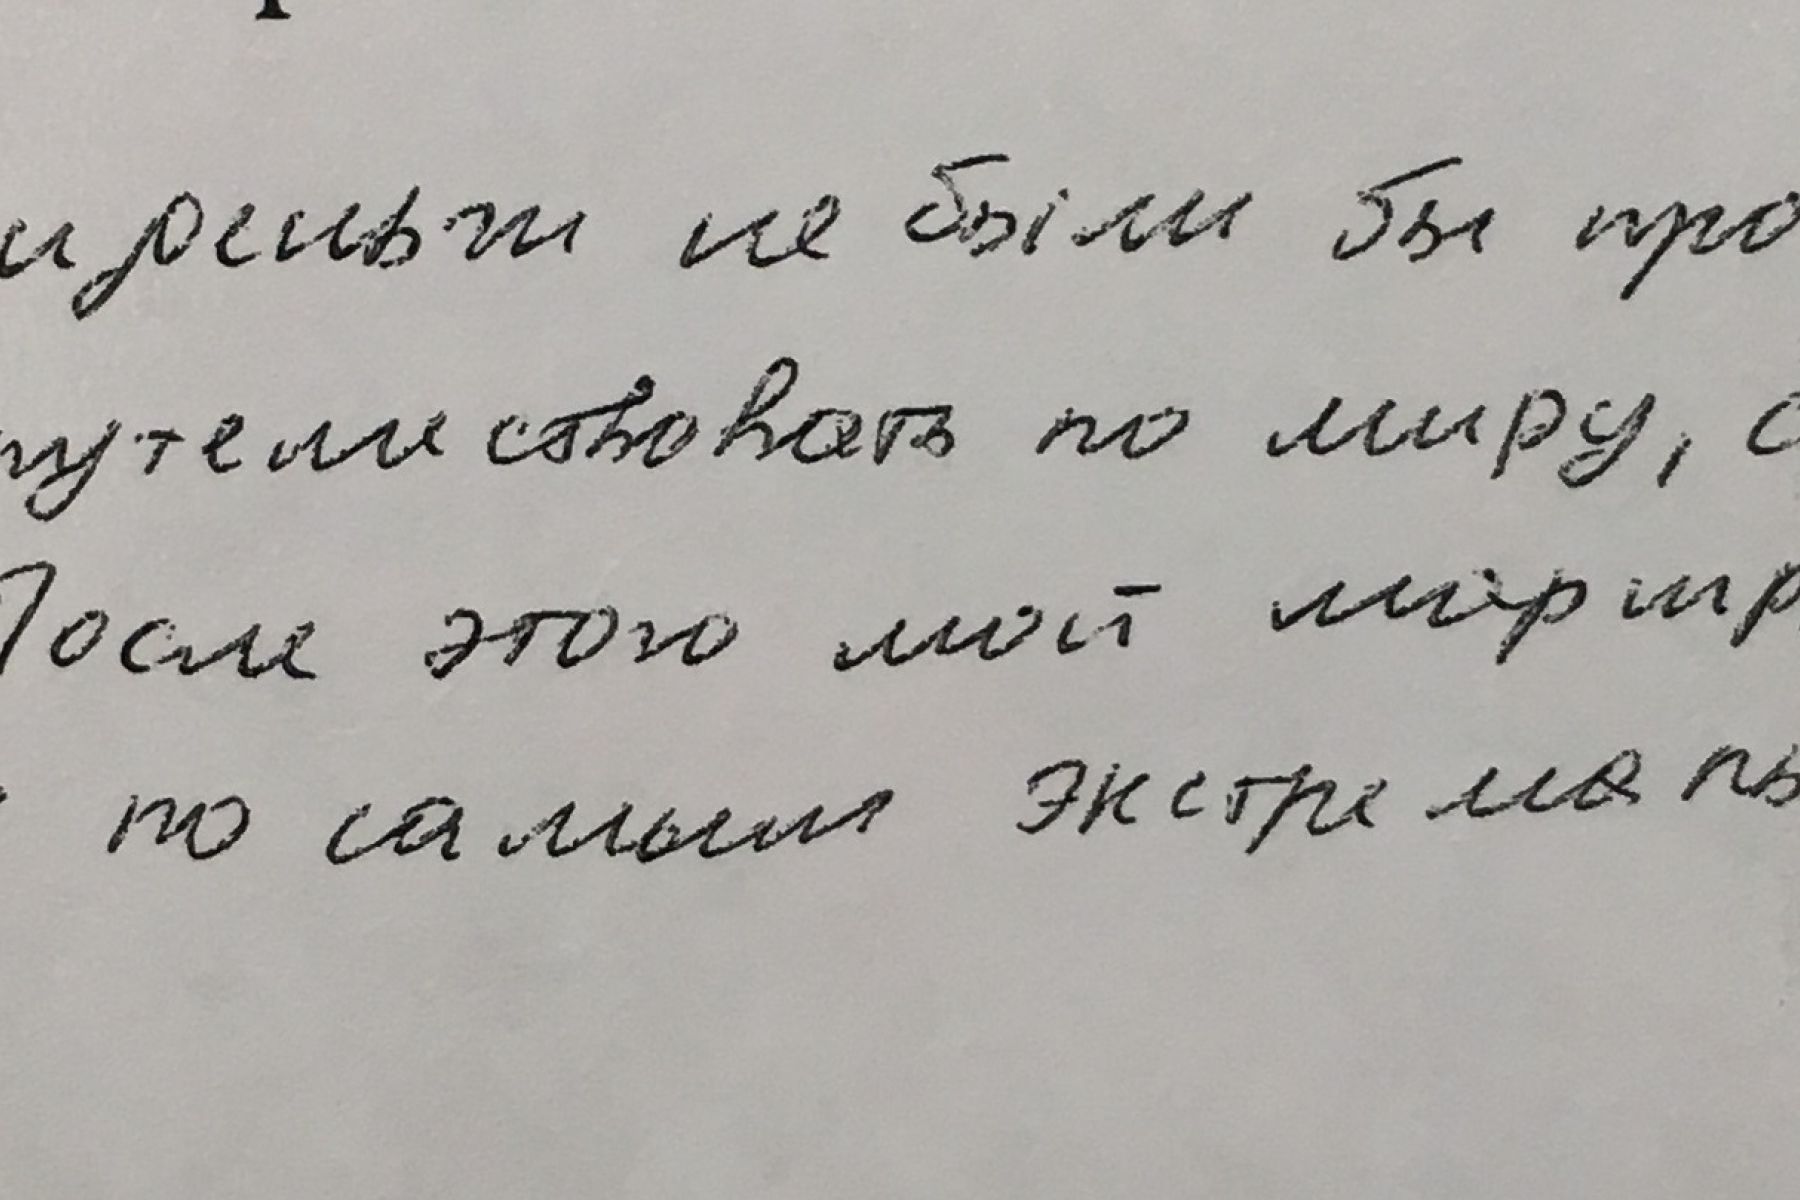 и деньги не были бы про
путешествовать по миру, с
После этого мой маршр
по самым экстремаль